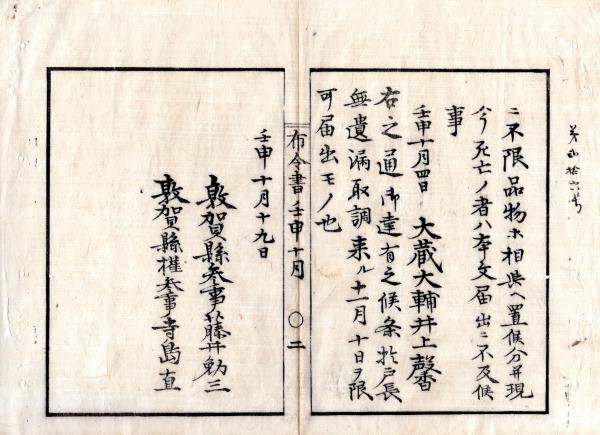 ニ不限品物ホ相與ヘ置候分并現
今死亡ノ者ハ本文届出ニ不及候
事
壬申十月四日 大蔵大輔井上馨
右之通御達有之候条於戸長
無遺漏取調来ル十一月十日ヲ限
可届出モノ也
布令書 壬申十月 〇二
壬申十月十九日
敦賀縣参事藤井勉三
敦賀縣権参事寺島直